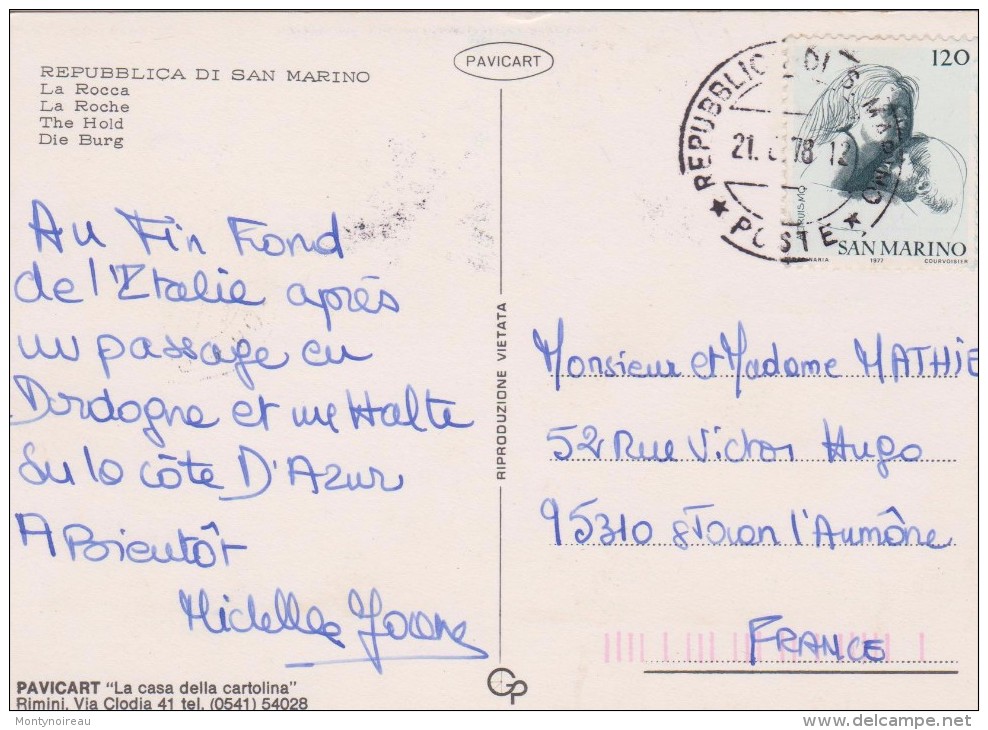 REPUBBLICA DI SAN MARINO
La Rocca
La Roche
The Hold
Die Burg
PAVICART
REPUBBLICA DI S. MARINO
21. 78 12
★ POSTE ★
120
SAN MARINO
1977 COURVOISIER
Au Fin Fond
de l'Italie après
un passage en
Dordogne et une Halte
Su la côte D'Azur
A Bientôt
RIPRODUZIONE VIETATA
Monsieur et Madame MATHIE
52 Rue Victor Hugo
95310 St Ouen l'Aumône
FRANCE
PAVICART "La casa della cartolina"
Rimini. Via Clodia 41 tel. (0541) 54028
Montynoireau
delcampe.net